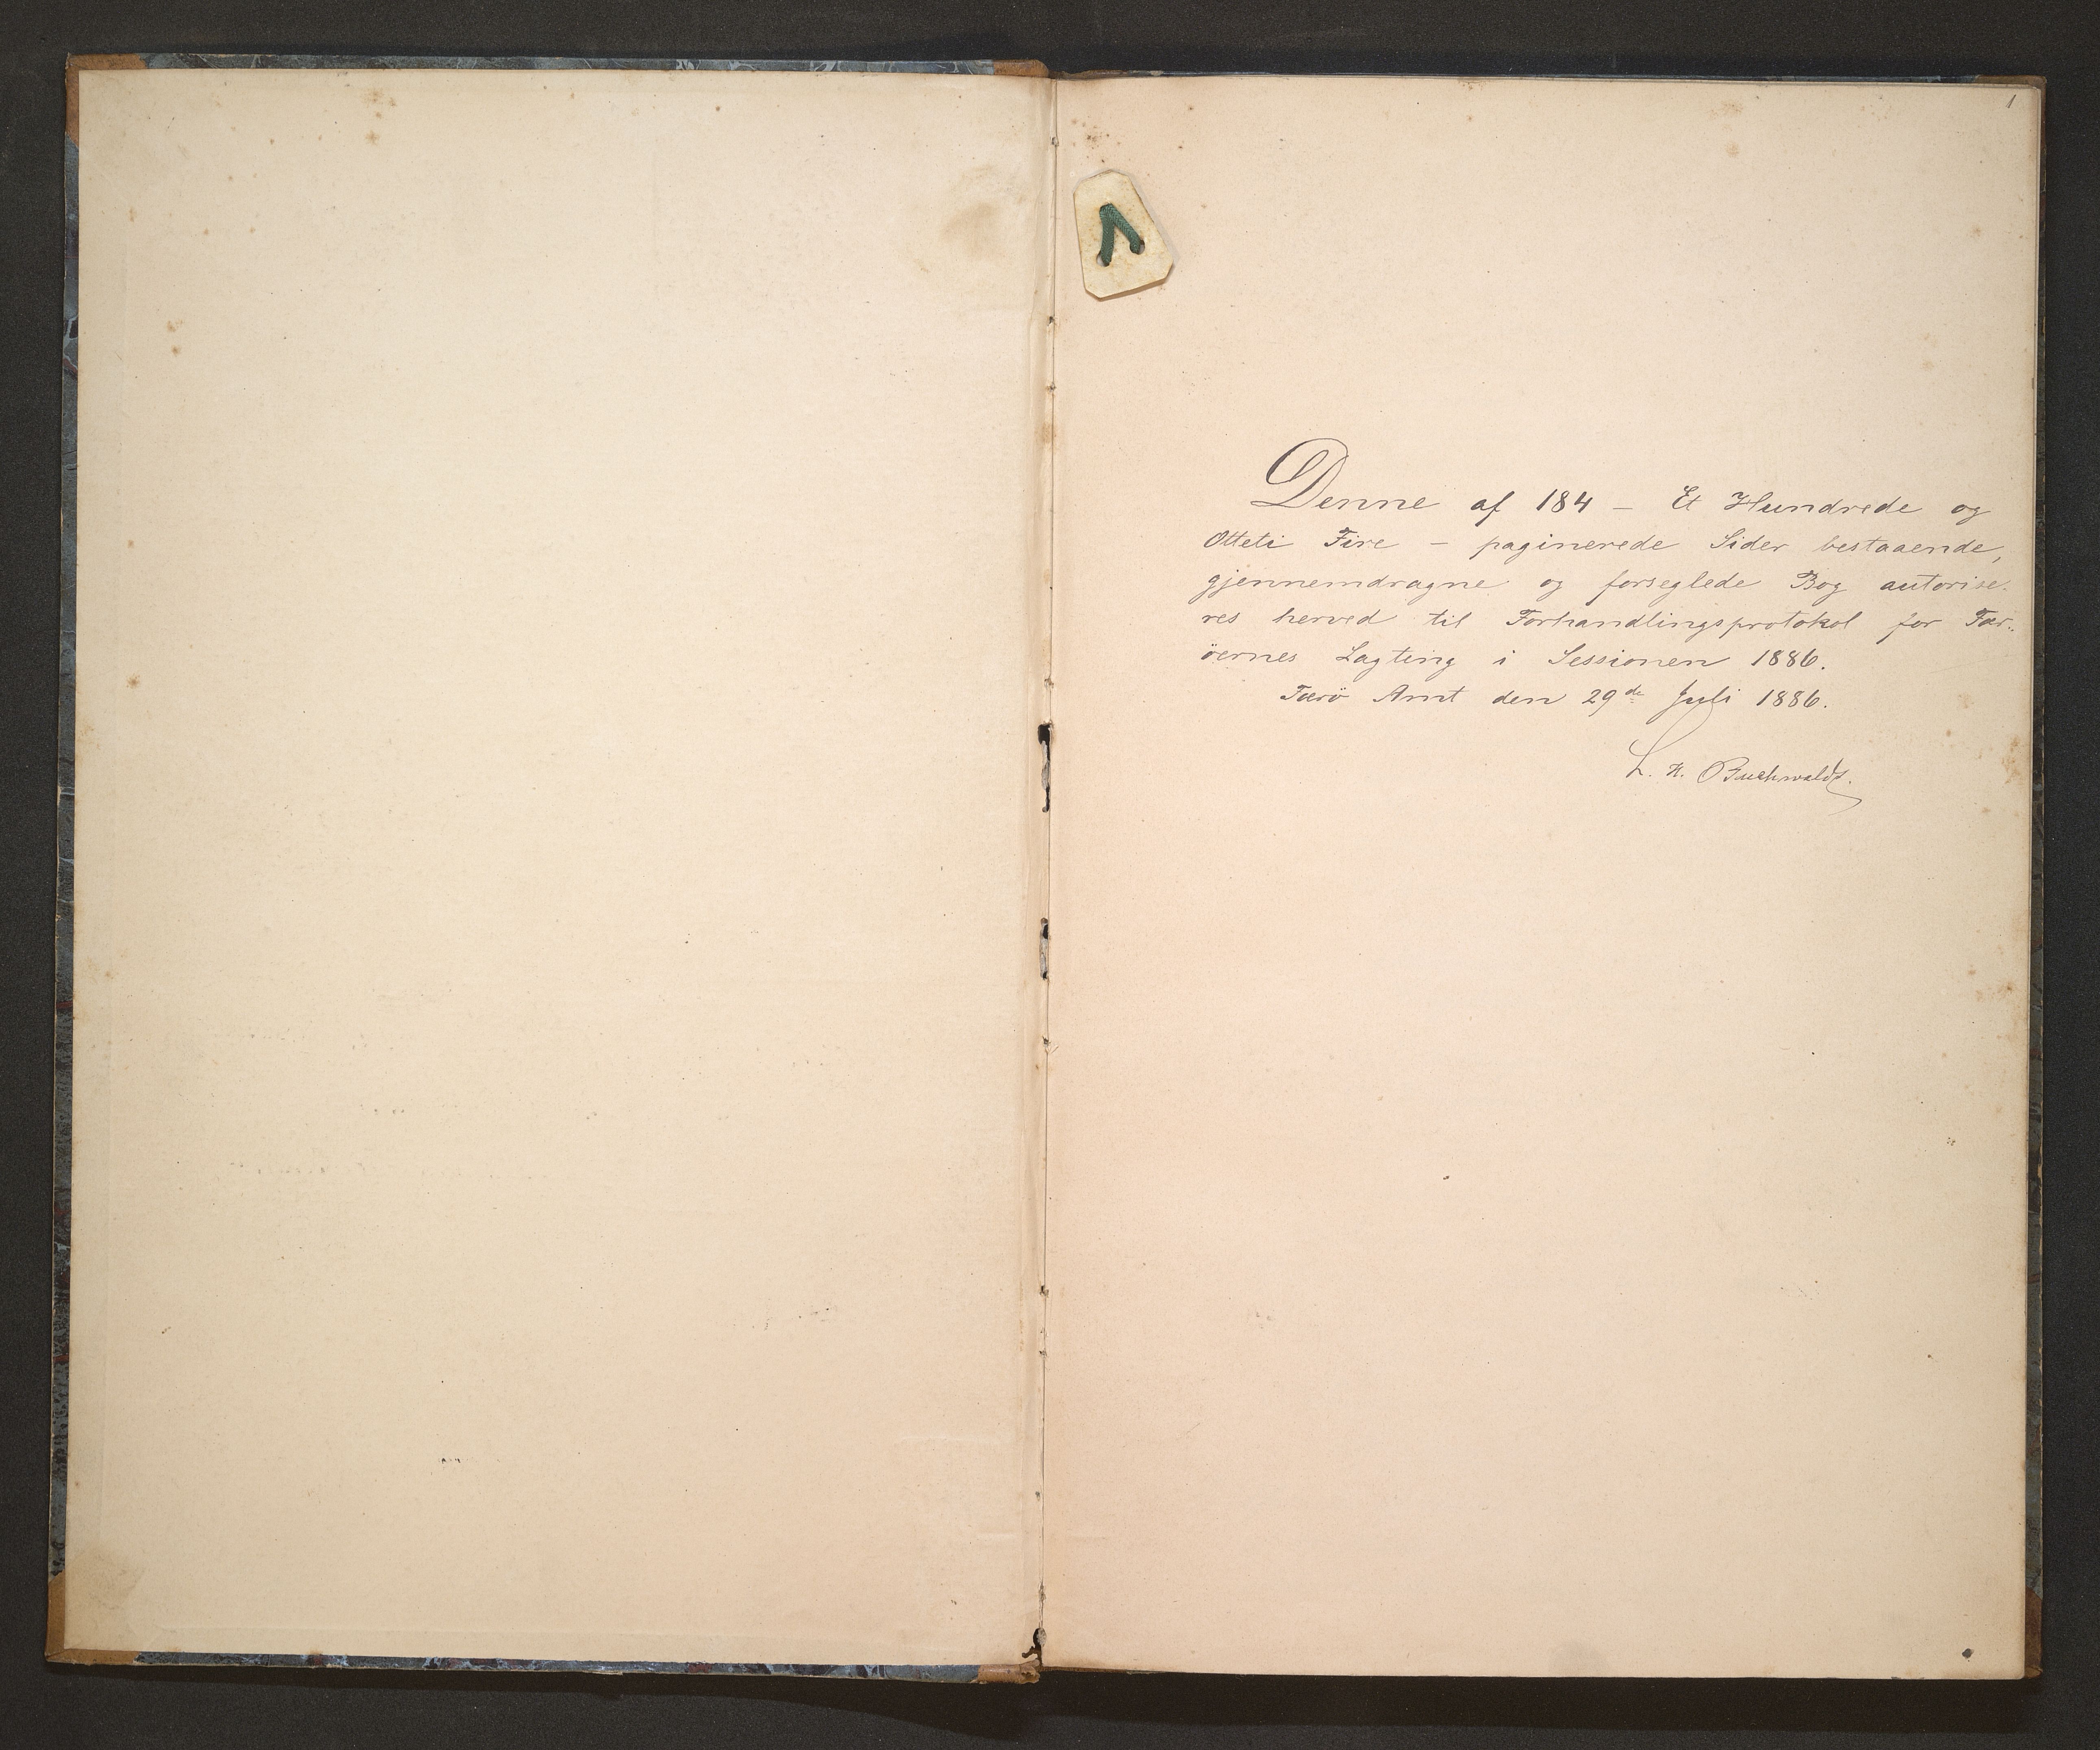 1
Denne af 184 – Et Hundrede og
Otteti Fire – paginerede Sider bestaaende,
gjennemdragne og forseglede Bog autorise-
res herved til Forhandlingsprotokol for Fær-
öernes Lagting i Sessionen 1886.
Færö Amt den 29de Juli 1886.
L. H. Buchwaldt.